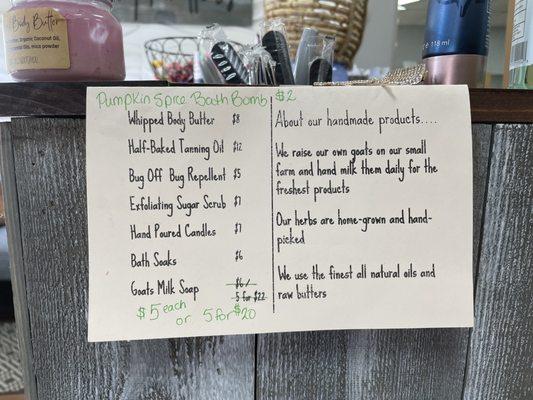 Body Butter
118 ml
Pumpkin Spice Bath Bomb $2
Whipped Body Butter $8
Half-Baked Tanning Oil $12
Bug Off Bug Repellent $5
Exfoliating Sugar Scrub $7
Hand Poured Candles $7
Bath Soaks $6
Goats Milk Soap $6/
5 for $22
$5 each
or 5 for $20
About our handmade products....
We raise our own goats on our small
farm and hand milk them daily for the
freshest products
Our herbs are home-grown and hand-
picked
We use the finest all natural oils and
raw butters